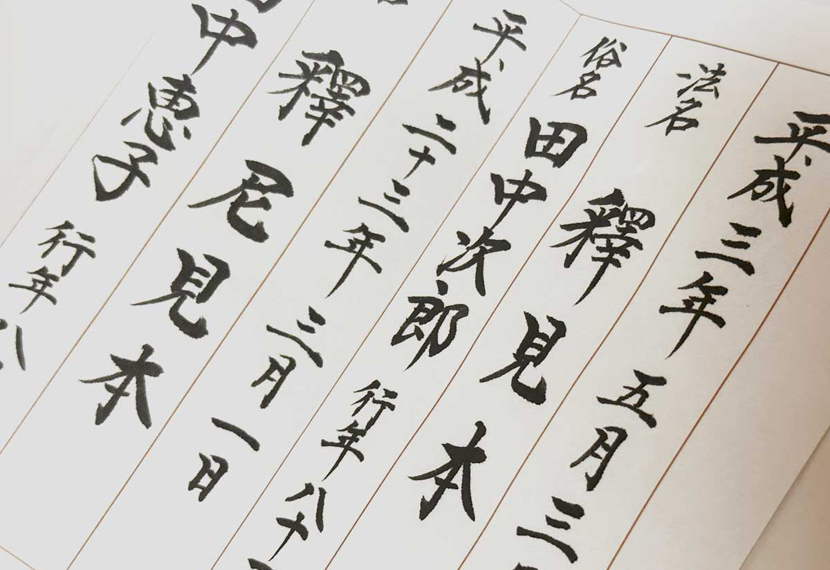 平成三年 五月三
法名 釋見本
俗名 田中次郎 行年八十
平成二十三年 三月一日
釋尼見本
中恵子 行年八